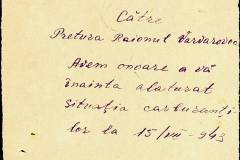 Către
Pretura Raionul Vardarovca
Avem onoare a vă
înainta alaturat
situația carburanți-
lor la 15/VII - 943